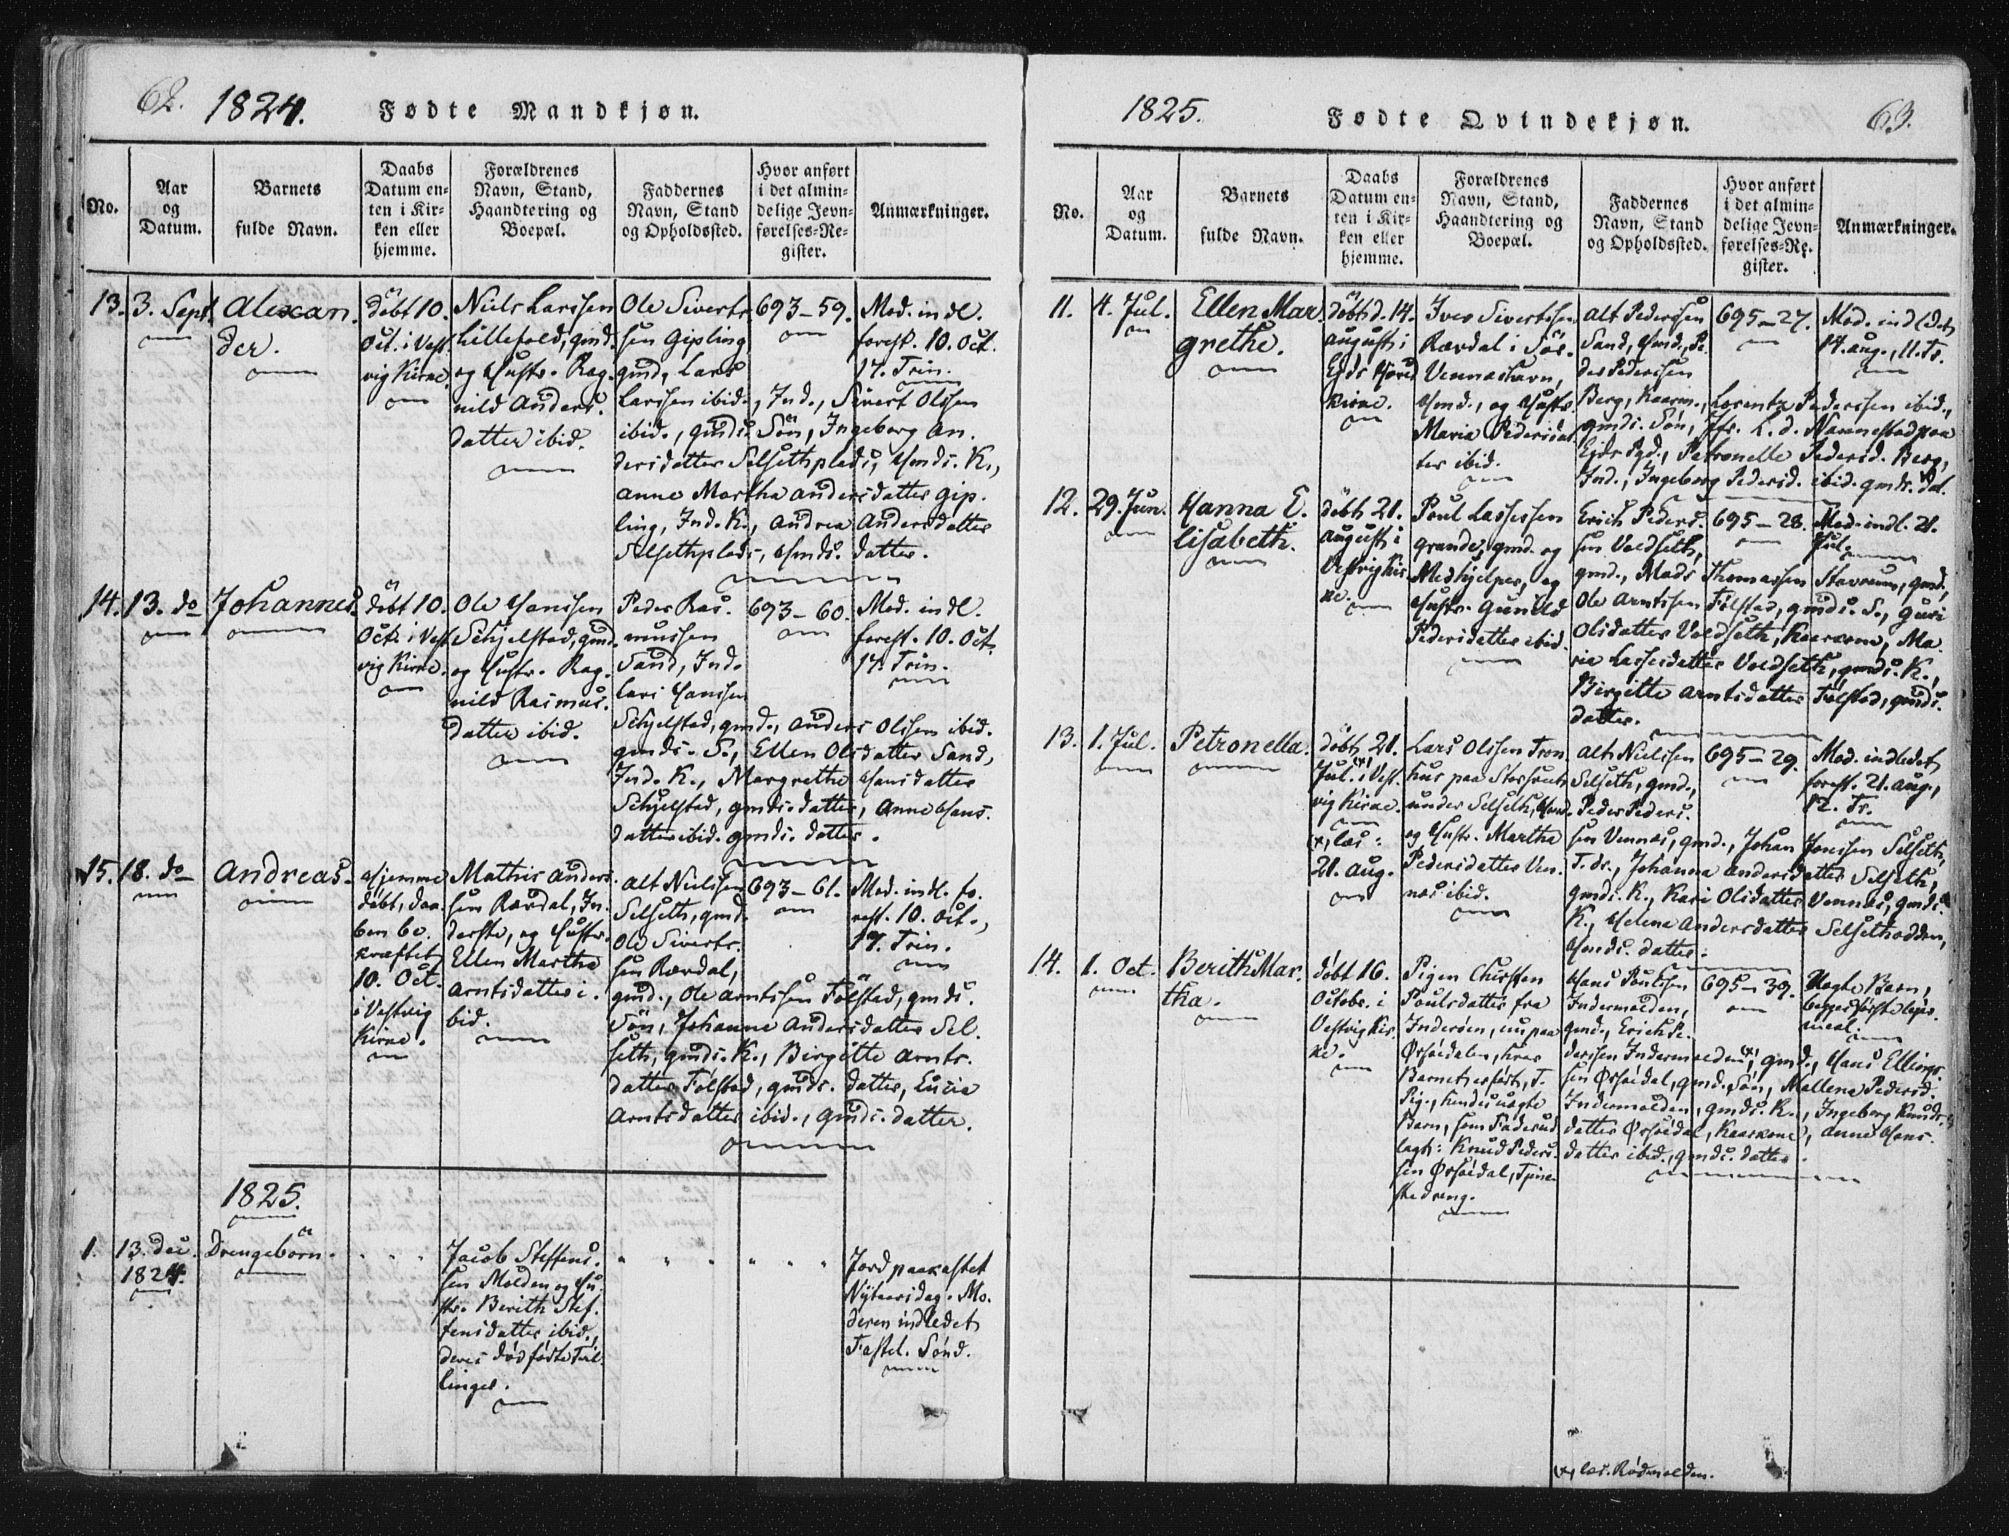 62. 1824. Fødte Mandkjøn.
No.
Aar
og
Datum.
Barnets
fulde Navn.
Daabs
Datum en-
ten i Kir-
ken eller
hjemme.
Forældrenes
Navn, Stand,
Haandtering og
Boepæl.
Faddernes
Navn, Stand
og Opholdssted.
Hvor anført
i det almin-
delige Jevn-
førelses-Re-
gister.
Anmærkninger.
13. 3. Sept.
Alexan.
der.
döbt 10.
Oct. i Vest.
vig Kirke.
Niels Larssen
Lillefold, gmd.
og Hustr. Rag.
nild Anders.
datter ibid.
Ole Siverts.
sen Gipling
gmd, Lars
Larssen ibid., Ind., Sivert Olssen
ibid., gmds. Sön, Ingeborg An.
dersdatter Selsethplads, Hmds. K.,
Anne Martha Andersdatter Gip.
ling, Ind. K., Andrea Andersdatter
Selsethplads, Hmds. datter.
693 - 59.
Mod. indl.
forest. 10. Oct.
17. Trin.
14. 13. do
Johannes.
döbt 10.
Oct. i Vest
vig Kirke.
Ole Hanssen
Schjelstad, gmd.
og Hustr. Rag.
nild Rasmus.
datter ibid.
Peder Ras.
mussen
Sand, Ind.
Lars Hanssen
Schjelstad, gmd., Anders Olssen ibid.
gmds. S., Ellen Olsdatter Sand,
Ind. K., Margrethe Hansdatter
Schjelstad, gmds. datter, Anne Hans.
datter ibid. gmds. datter.
693 - 60.
Mod. indl.
forest. 10. Oct.
17. Trin.
15. 18. do
Andreas.
Hjemme
döbt, daa
ben be.
kræftet
10. Oct.
i Vestvig
Kirke.
Mathis Anders
sen Rævdal, In.
derste, og Hustr.
Ellen Martha
Arntsdatter i.
bid.
Alt Nielssen
Selseth, gmd.
Ole Siverts.
sen Rævdal,
gmd., Ole Arntssen Følstad, gmds.
Sön, Johanne Andersdatter Sel.
seth, gmds. K., Birgitte Arnts.
datter Følstad, gmds. datter, Lucia
Arntsdatter ibid., gmds. datter.
693 - 61.
Mod. indl. fo.
rest. 10. Oct.,
17. Trin.
1825.
1. 13. Dec.
1824.
Drengebörn.
Jacob Steffens.
sen Molden og Hu.
str. Berith Stef.
fensdatter ibid.,
deres dødfødte Tvil.
linger.
Jord paakastet
Nytaarsdag. Mo.
deren indledet
Fastel. Sønd.
1825. Fødte Qvindekjøn. 63.
No.
Aar
og
Datum.
Barnets
fulde Navn.
Daabs
Datum en-
ten i Kir-
ken eller
hjemme.
Forældrenes
Navn, Stand,
Haandtering og
Boepæl.
Faddernes
Navn, Stand
og Opholdssted.
Hvor anført
i det almin-
delige Jevn-
førelses-Re-
gister.
Anmærkninger.
11. 4. Jul.
Ellen Mar.
grethe.
döbt d. 14.
August i
Egds Hoved
kirke.
Iver Sivertssen
Rævdal i Sös.
Vennashavn,
Hmd., og Hustr.
Maria Pedersdat
ter ibid.
Alt Pederssen
Sand, Hmd., Pe.
der Pederssen
Berg, Kaarm., Lorentz Pederssen ibid.,
gmds. Søn, Jfr. L. d. Nannestad paa
Egds Pgd., Petronelle Pedersd. Berg,
Ind., Ingeborg Pedersd. ibid. gmds. dat.
695 - 27.
Mod. indledet
14. Aug., 11. Tr.
12. 29. Jun.
Hanna E.
lisabeth.
döbt 21.
August i
Vestvig Kir.
ke.
Poul Lassessen
Grande, gmd. og
Medhjelper, og
Hustr. Gunild
Pedersdatter ibid.
Erich Peders.
sen Voldseth,
gmd., Mads Thomassen Stavrum, gmd.,
Ole Arntssen Følstad, gmds. S., Guri
Olsdatter Voldseth, Kaarkone, Ma
ria Lassesdatter Voldseth, gmds. K.,
Birgitte Arntsdatter Følstad, gmds.
datter.
695 - 28.
Mod. indl. 21.
Jul.
13. 1. Jul.
Petronella.
döbt 21.
Jul. (x) i Vest.
vig Kirke.
(x, læs:
21. Aug.
Lars Olssen Tron
hus paa
under Selseth, Hmd.
og Hustr. Martha
Pedersdatter Ven.
nes ibid.
Alt Nielssen
Selseth, gmd.,
Peder Peders.
sen Vennes, gmd., Johan Jonssen Selseth,
T. dr., Johanna Andersdatter Selseth,
gmds. K., Kari Olsdatter Vennes, gmds.
K., Helena Andersdatter Selsethodden,
Hmds. datter.
695 - 29.
Mod. indledet
forest. 21. Aug.,
12. Tr.
14. 1. Oct.
Berith Mar.
tha.
döbt 16.
Octobr. i
Vestvig Kir.
ke.
Pigen Chirsten
Poulsdatter fra
Inderöen, nu paa
Ørsöidalen, hvor
Barnet er født, T.
Pig., hendes uægte
Barn, som Fader ud
lagt: Knud Peders.
sen Ørsöidal, Tjene.
stedreng.
Hans Poulssen
Indermolden,
gmd., Erich Pe.
derssen Indermolden (x), gmd., Hans Ellings.
sen Ørsöidal, gmd. Søn, Mallena Pedersd.
Indermolden, gmds. K., Ingeborg Knuds.
datter Ørsöidal, Kaarkone, Anne Hans.
datter ibid., gmds. datter.
695 - 39.
Uægte Barn,
begges første leier.
maal.
(x, læs. Rødmolden.